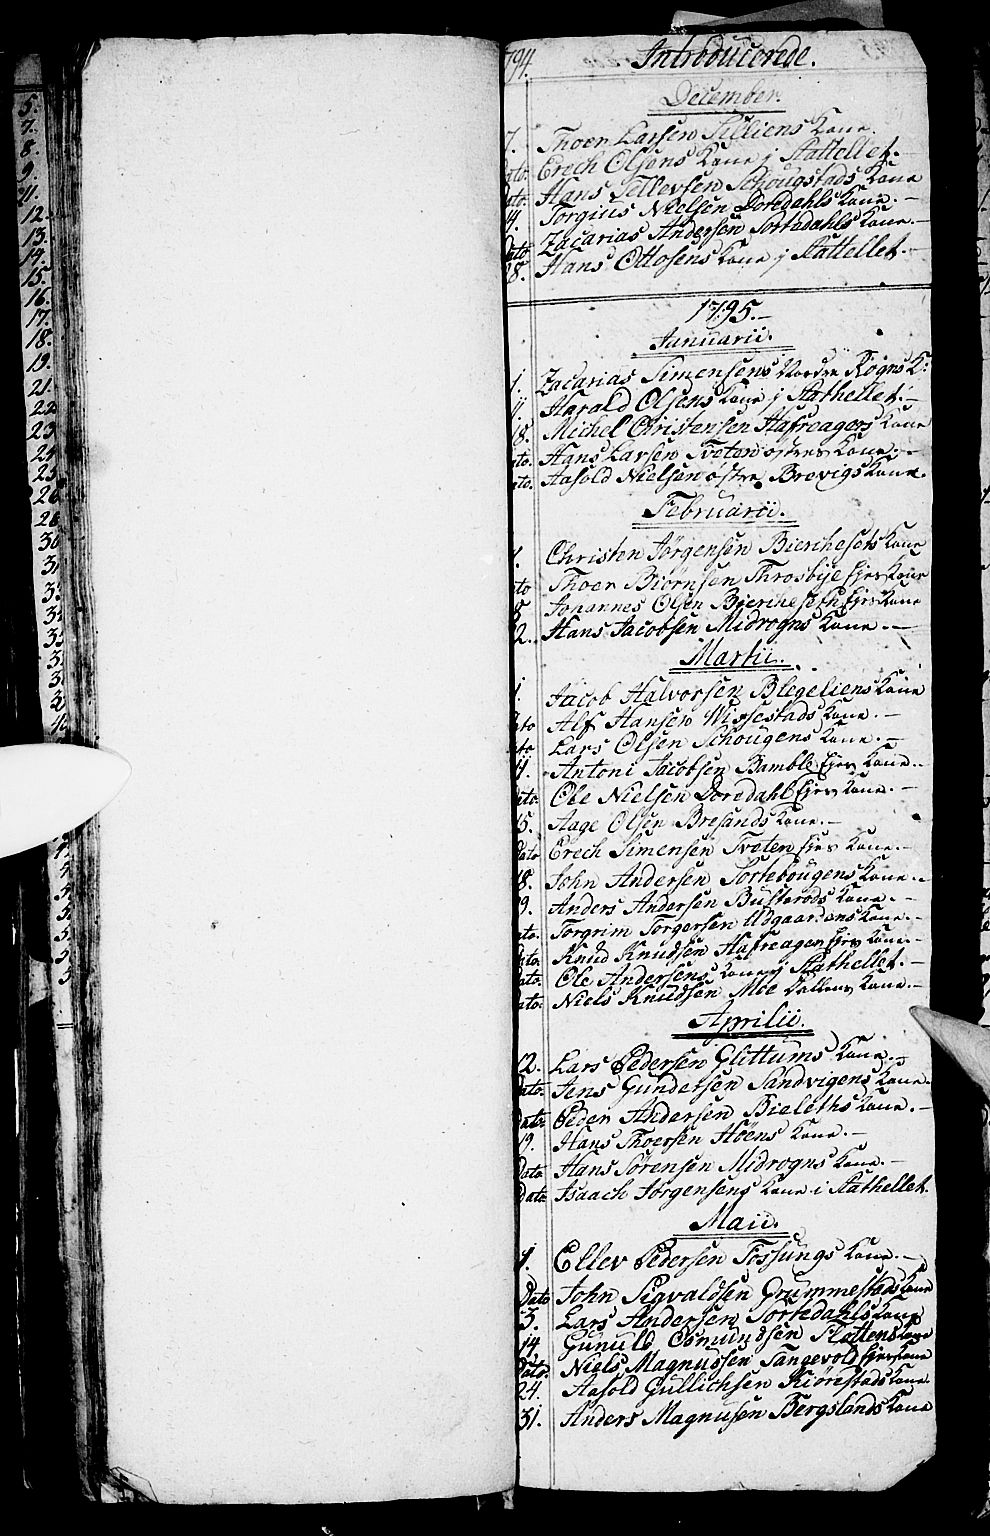 794. Introducerede.
December.
7. Thoer Larsen Tilliens Kone.
Dato Erech Olsens Kone j Stathellet.
Dato. Hans Tellevsen Schougstads Kone
4. Torgius Nielsen Dordahls Kone.
Dato Zacarias Andersen Tortedahls Kone.
28. Hans Ottosens Kone j Stathellet.
1795.
Januarii.
1. Zacarias Simensens Nordre Rogns K:
11. Harald Olsens Kone j Stathellet.
18. Michel Christensen Hafreagers Kone
Dato. Hans Larsen Tveten Kone.
Dato. Aasold Nielsen østre Brevigs Kone.
Februarii.
Christen Jørgensen Bierchesets Kone
Dato Thoer Biørnsen Throsbye Ejers Kone
Johannes Olsen Biercheseth Ejers Kone
22. Hans Jacobsen Midrogns Kone.
Martii.
1. Jacob Halvorsen Blegeliens Kone
Dato Alf Hansen Wissestads Kone.
Dato Lars Olsen Schougens Kone.
Antoni Jacobsen Bamble Ejers Kone.
Dato. Ole Nielsen Dordahl Ejers Kone.
15. Aage Olsen Bresands Kone.
Dato Erech Simensen Tveten Ejers Kone.
18. John Andersen Tortebougens Kone.
Anders Andersen Busterods Kone.
Dato. Torgrim Torgersen Udgaardens Kone.
Dato. Knud Knudsen Hafreager Ejers Kone.
Dato. Ole Andersens Kone j Stathellet.
Dato. Niels Knudsen Moe Kone.
Aprilii.
12. Lars Pedersen Glittums Kone.
Dato. Jens Gundersen Sandvigens Kone.
Dato. Peder Andersen Bieleths Kone.
19. Hans Thoersen Høens Kone.
Dato Hans Sörensen Midrogns Kone.
Dato. Isaach Jörgensens Kone i Stathellet.
Maii.
1. Ellev Pedersen Fossungs Kone.
Dato John Sigvaldsen Grummestads Kone
3. Lars Andersen Tortedahls Kone
14 Gunuld Osmundsen Slottens Kone
Dato. Niels Magnussen Tangevold Ejers Kone
24. Aasold Gullichsen Kiørestads Kone
31. Anders Magnusen Bergslands Kone
5.
7.
8.
9.
11.
12.
13.
14.
15.
16.
17.
18.
19.
21.
22
23
24
25
26
28
30